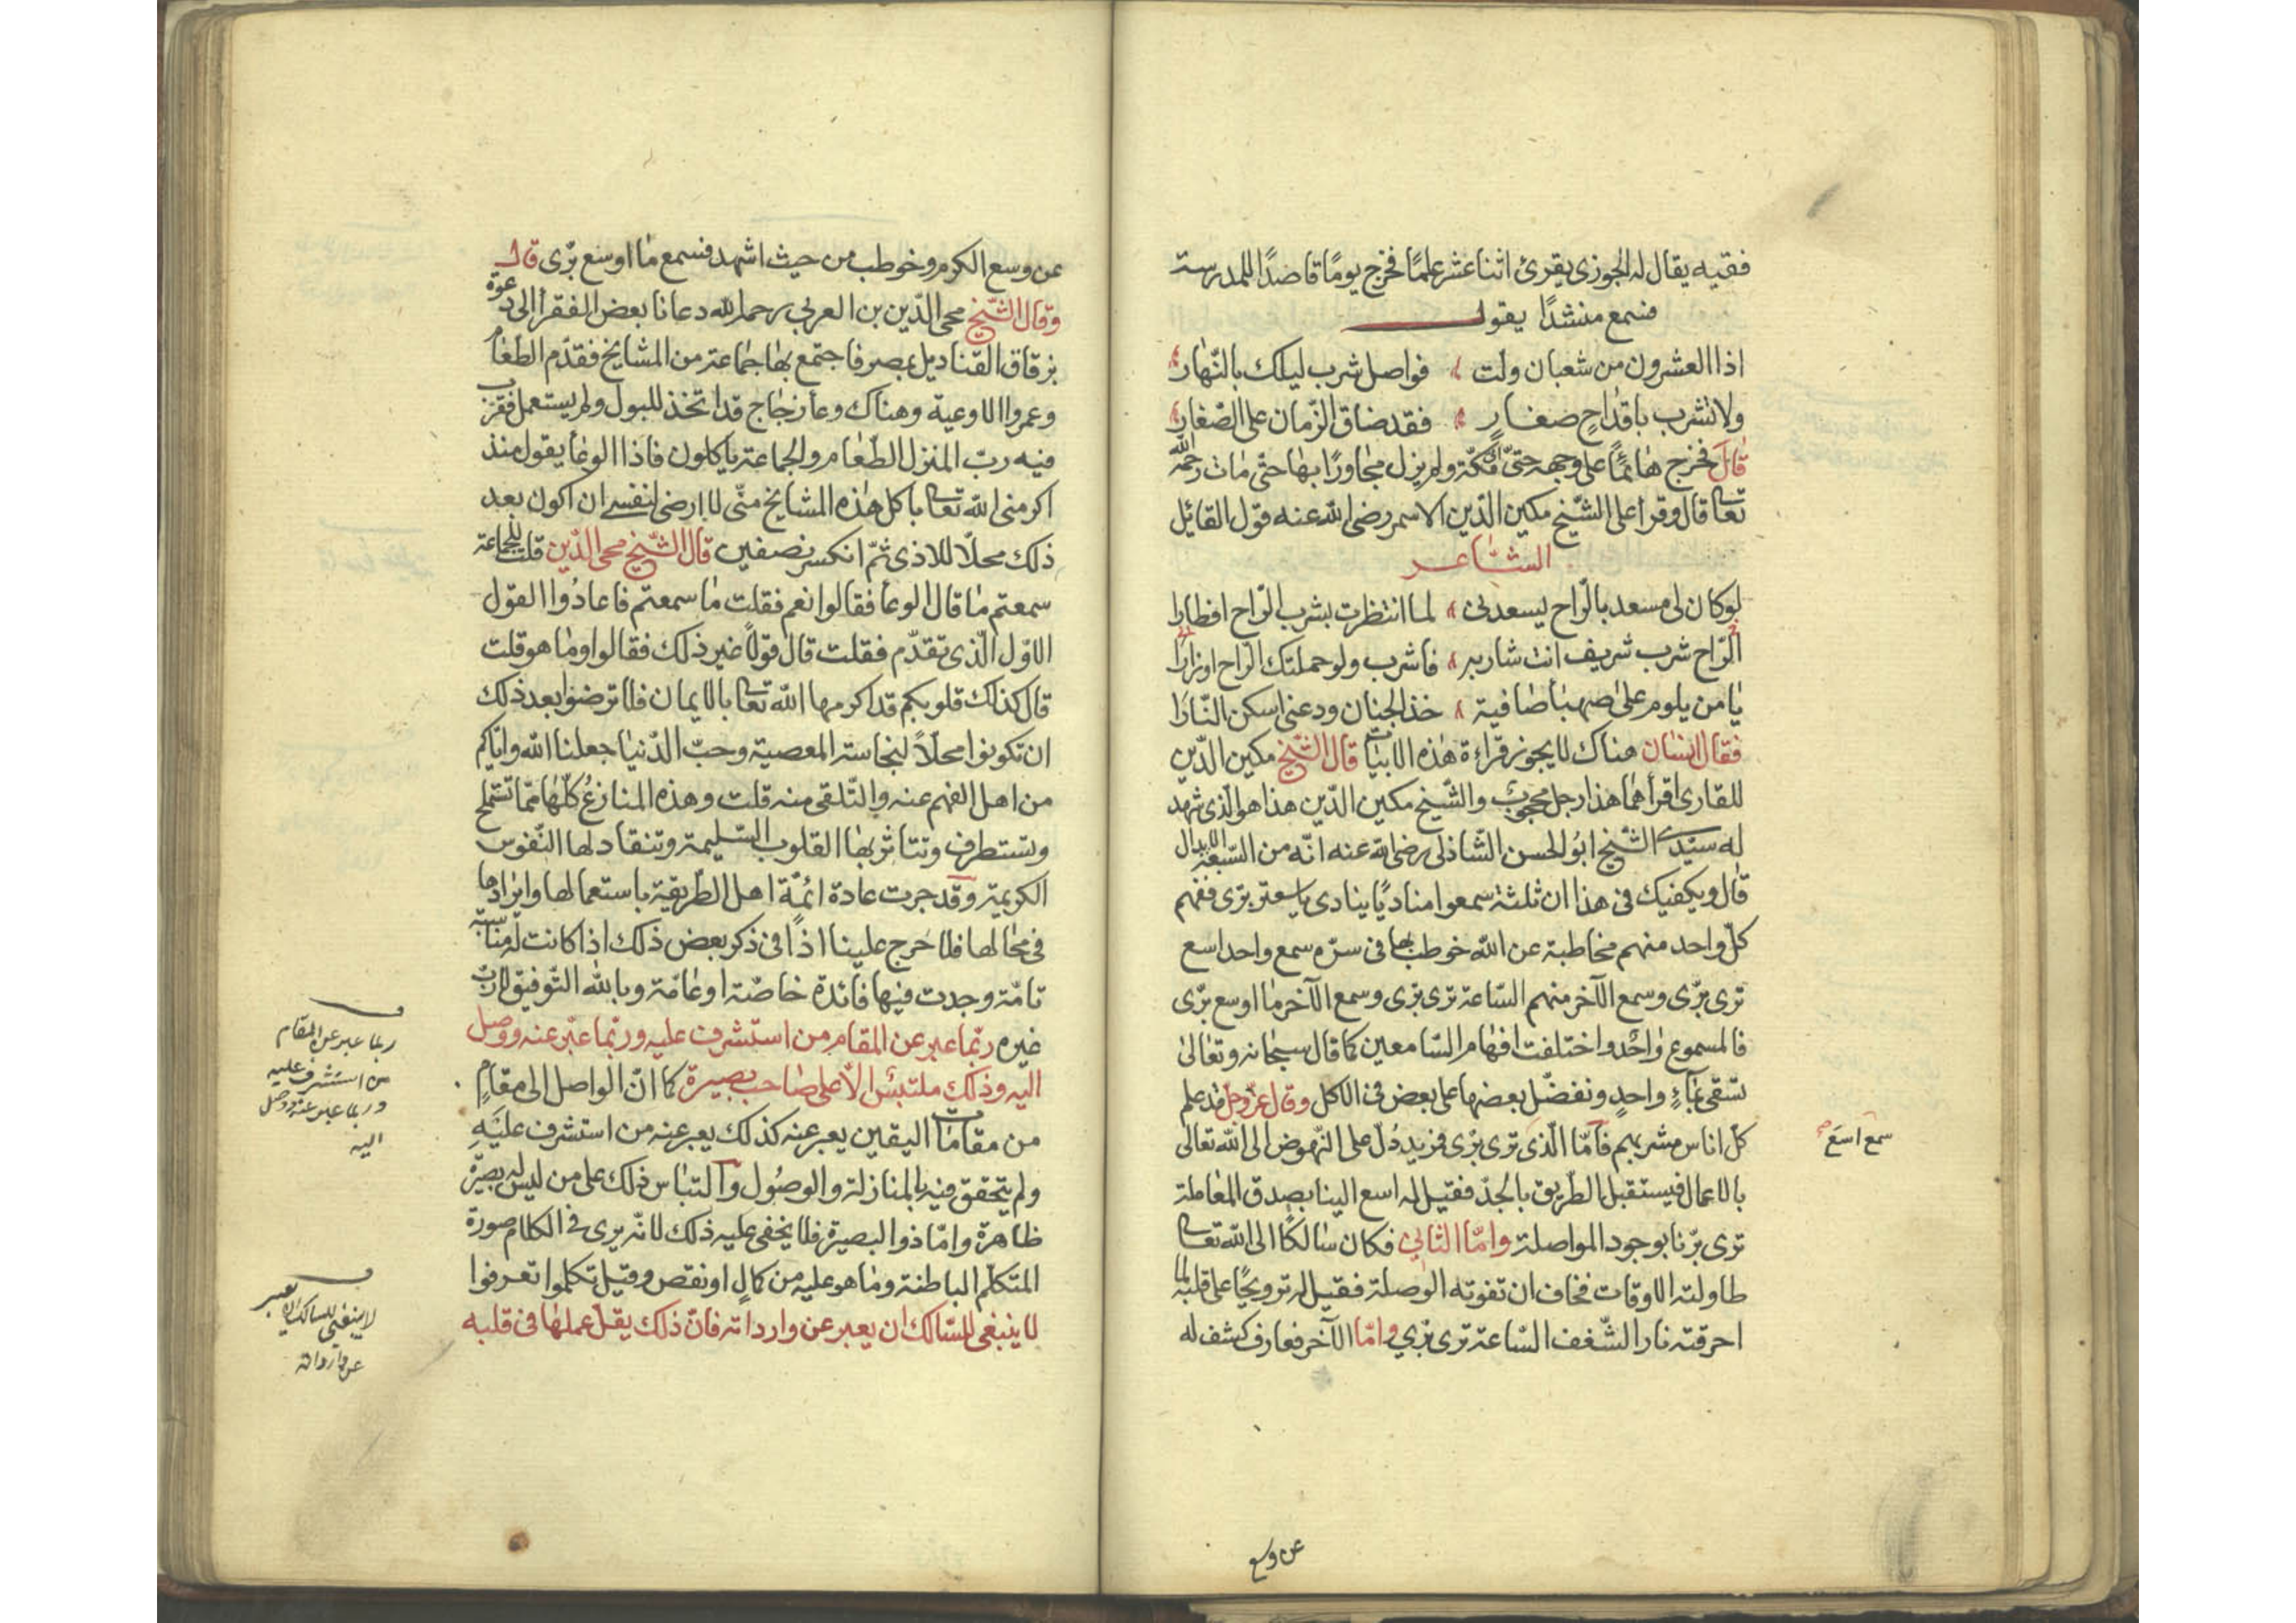 فقيه يقال له الجوزى يقرئ اثنا عشر علمًا فخرج يومًا قاصدًا للمدرسة
فسمع منشدًا يقول
اذا العشرون من شعبان ولت فواصل شرب ليلك بالنّهار
ولا تشرب باقداح صغار فقد ضاق الزّمان على الصّغار
قال فخرج هائمًا على وجهه حتّى اتى مكّة ولم يزل مجاورًا بها حتّى مات رحمه الله
تعالى قال وقرأ على الشّيخ مكين الدّين الاسمر رضى الله عنه قول القائل
الشاعر
لو كان لى مسعد بالرّاح يسعدنى لما انتظرت بشرب الرّاح افطارا
الرّاح شرب شريف انت شاربه فاشرب ولو حملتك الرّاح اوزارا
يا من يلوم على صهبا صافية خذ الجنان ودعنى اسكن النّارا
فقال انسان هناك لا يجوز قراءة هذه الابيات قال الشّيخ مكين الدّين
للقارى اقرأها هذا رجل محجوب والشّيخ مكين الدّين هذا هو الّذى شهد
له سيّدى الشّيخ ابو الحسن الشّاذلى رضى الله عنه انّه من السّبعة الابدال
قال ويكفيك فى هذا ان ثلثة سمعوا مناديًا ينادى يا سعتر برّى ففهم
كلّ واحد منهم مخاطبة عن الله خوطب بها فى سرّه سمع واحد اسع
ترى برّى وسمع الآخر منهم السّاعة ترى برّى وسمع الآخر ما اوسع برّى
فالمسموع واحد واختلفت افهام السّامعين كما قال سبحانه وتعالى
تسقى بماء واحد ونفضّل بعضها على بعض فى الاكل وقال عزّ وجلّ قد علم
كلّ اناس مشربهم فامّا الّذى ترى برّى فمريد دُلّ على النّهوض الى الله تعالى
بالاعمال فيستقبل الطّريق بالجدّ فقيل له اسع الينا بصدق المعاملة
ترى برّنا بوجود المواصلة وامّا الثّانى فكان سالكًا الى الله تعالى
طاولته الاوقات فخاف ان تفوته الوصلة فقيل له ترويحًا على قلبه لما
احرقته نار الشّغف السّاعة ترى برّي وامّا الآخر فعارف كشف له
سمع اسع صح
عن وسع
عن وسع الكرم وخوطب من حيث اشهد فسمع ما اوسع برّى قال
وقال الشّيخ محى الدّين بن العربى رحمه الله دعانا بعض الفقرا الى دعوة
بزقاق القناديل بمصر فاجتمع بها جماعة من المشايخ فقدّم الطّعام
وعمروا الاوعية وهناك وعاء زجاج قد اتخذ للبول ولم يستعمل فقرب
فيه ربّ المنزل الطّعام والجماعة ياكلون فاذا الوعا يقول منذ
اكرمنى الله تعالى باكل هذه المشايخ منّى لا ارضى لنفسى ان اكون بعد
ذلك محلّا للاذى ثمّ انكسر نصفين قال الشّيخ محى الدّين قلت للجماعة
سمعتم ما قال الوعا فقالوا نعم فقلت ما سمعتم فاعادُوا القول
الاوّل الّذى تقدّم فقلت قال قولًا غير ذلك فقالوا وما هو قلت
قال كذلك قلوبكم قد اكرمها الله تعالى بالايمان فلا ترضوا بعد ذلك
ان تكونوا محلّاً لنجاسة المعصية وحبّ الدّنيا جعلنا الله وايّاكم
من اهل الفهم عنه والتّلقى منه قلت وهذه المنازع كلّها ممّا تستملح
وتستطرف وتتاثر بها القلوب السّليمة وتنقاد لها النّفوس
الكريمة وقد جرت عادة ائمّة اهل الطّريقة باستعمالها وايرادها
فى محالها فلا حرج علينا اذًا فى ذكر بعض ذلك اذا كانت له مناسبة
تامّة وجدت فيها فائدة خاصّة او عامّة وبالله التّوفيق لا ربّ
غيره ربّما عبر عن المقام من استشرف عليه وربّما عبّر عنه ووصل
اليه وذلك ملتبسٌ الّا على صاحب بصيرة كما انّ الواصل الى مقام
من مقامات اليقين يعبر عنه كذلك يعبر عنه من استشرف عليه
ولم يتحقق فيه بالمنازلة والوصول والتباس ذلك على من ليس له بصيرة
ظاهرة وامّا ذوا البصيرة فلا يخفى عليه ذلك لانّه يرى فى الكلام صورة
المتكلّم الباطنة وما هو عليه من كمال او نقص وقيل تكلموا تعرفوا
لا ينبغى للسّالك ان يعبر عن وارداته فانّ ذلك يقلّ عملها فى قلبه
ربما عبر عن المقام
من استشرف عليه
وربما عبر عنه ووصل
اليه
لا ينبغى للسالك ان يعبر
عن وارداته